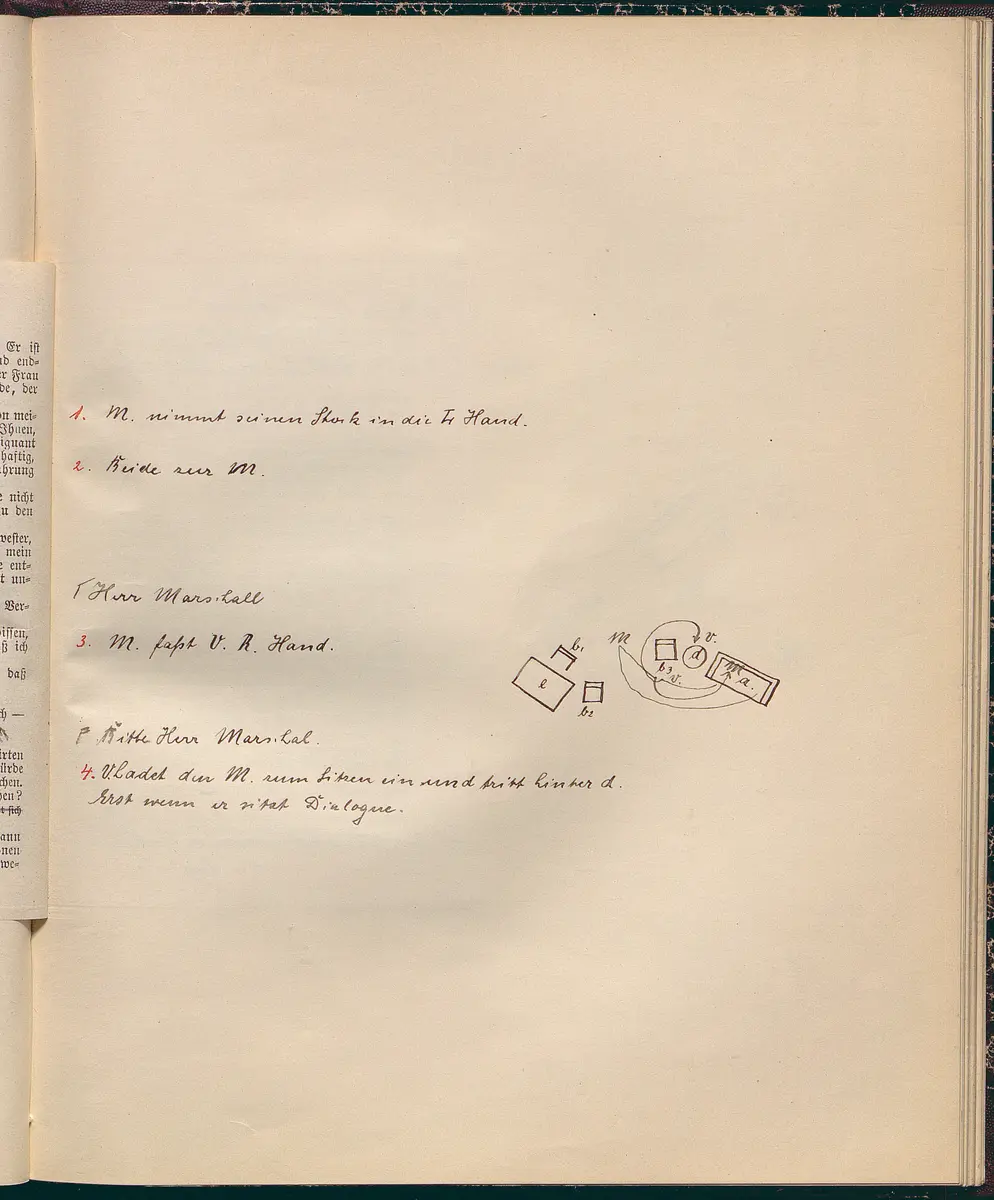 Er ist
nd end-
er Frau
de, der
on mei-
Ihnen,
iquant
haftig,
hrung
e nicht
u den
wester,
mein
e ent-
t un-
Ver-
issen,
ß ich
daß
ch —
irten
ürde
chen.
ben?
t sich
ann
nen
we-
1. M. nimmt seinen Stock in die Hand.
2. Beide zur M.
Herr Marschall
3. M. faßt V. R. Hand.
Bitte Herr Marschal.
4. V. ladet den M. zum Sitzen ein und tritt hinter d.
Erst wenn er sitzt Dialogue.
M
v.
b1
e
b2
b3
d
v.
M
a.